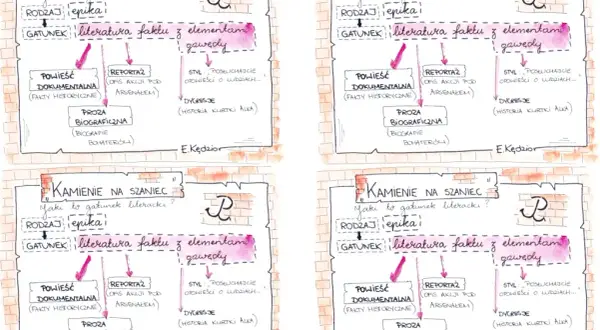 RODZAJ epika
GATUNEK literatura faktu z elementami
gawędy
POWIEŚĆ
DOKUMENTALNA
(FAKTY HISTORYCZNE)
REPORTAŻ
(OPIS AKCJI POD
ARSENAŁEM)
PROZA
BIOGRAFICZNA
(BIOGRAFIE
BOHATERÓW)
STYL "POSŁUCHAJCIE
OPOWIEŚCI O LUDZIACH..."
DYGRESJE
(HISTORIA KURTKI ALKA)
E.Kędzior
RODZAJ epika
GATUNEK literatura faktu z elementami
gawędy
POWIEŚĆ
DOKUMENTALNA
(FAKTY HISTORYCZNE)
REPORTAŻ
(OPIS AKCJI POD
ARSENAŁEM)
PROZA
BIOGRAFICZNA
(BIOGRAFIE
BOHATERÓW)
STYL "POSŁUCHAJCIE
OPOWIEŚCI O LUDZIACH..."
DYGRESJE
(HISTORIA KURTKI ALKA)
E.Kędzior
„KAMIENIE NA SZANIEC"
Jaki to gatunek literacki?
RODZAJ epika
GATUNEK literatura faktu z elementami
gawędy
POWIEŚĆ
DOKUMENTALNA
(FAKTY HISTORYCZNE)
REPORTAŻ
(OPIS AKCJI POD
ARSENAŁEM)
PROZA
STYL "POSŁUCHAJCIE
OPOWIEŚCI O LUDZIACH..."
DYGRESJE
(HISTORIA KURTKI ALKA)
„KAMIENIE NA SZANIEC"
Jaki to gatunek literacki?
RODZAJ epika
GATUNEK literatura faktu z elementami
gawędy
POWIEŚĆ
DOKUMENTALNA
(FAKTY HISTORYCZNE)
REPORTAŻ
(OPIS AKCJI POD
ARSENAŁEM)
PROZA
STYL "POSŁUCHAJCIE
OPOWIEŚCI O LUDZIACH..."
DYGRESJE
(HISTORIA KURTKI ALKA)